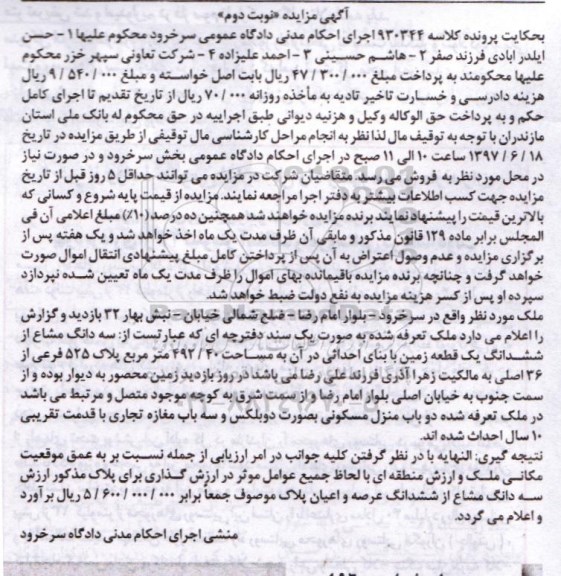 آگهی مزایده «نوبت دوم»
بحکایت پرونده کلاسه ۹۳۰۳۴۴ اجرای احکام مدنی دادگاه عمومی سرخرود محکوم علیها ۱ - حسن
ایلدر ابادی فرزند صفر ۲ - هاشم حسینی ۳ - احمد علیزاده ۴ - شرکت تعاونی سپهر خزر محکوم
علیها محکومند به پرداخت مبلغ ۴۷/۳۰۰/۰۰۰ ریال بابت اصل خواسته و مبلغ ۹/۵۴۰/۰۰۰ ریال
هزینه دادرسی و خسارت تاخیر تادیه به مأخذه روزانه ۷۰/۰۰۰ ریال از تاریخ تقدیم تا اجرای کامل
حکم و به پرداخت حق الوکاله وکیل و هزنیه دیوانی طبق اجراییه در حق محکوم له بانک ملی استان
مازندران با توجه به توقیف مال لذا نظر به انجام مراحل کارشناسی مال توقیفی از طریق مزایده در تاریخ
۱۸ / ۶ / ۱۳۹۷ ساعت ۱۰ الی ۱۱ صبح در اجرای احکام دادگاه عمومی بخش سرخرود و در صورت نیاز
در محل مورد نظر به فروش می رسد متقاضیان شرکت در مزایده می توانند حداقل ۵ روز قبل از تاریخ
مزایده جهت کسب اطلاعات بیشتر به دفتر اجرا مراجعه نمایند. مزایده از قیمت پایه شروع و کسانی که
بالاترین قیمت را پیشنهاد نمایند برنده مزایده خواهند شد همچنین ده درصد (۱۰٪) مبلغ اعلامی آن فی
المجلس برابر ماده ۱۲۹ قانون مذکور و مابقی آن ظرف مدت یک ماه اخذ خواهد شد و یک هفته پس از
برگزاری مزایده و عدم وصول اعتراض به آن پس از پرداختن کامل مبلغ پیشنهادی انتقال اموال صورت
خواهد گرفت و چنانچه برنده مزایده باقیمانده بهای اموال را ظرف مدت یک ماه تعیین شده نپردازد
سپرده او پس از کسر هزینه مزایده به نفع دولت ضبط خواهد شد.
ملک مورد نظر واقع در سرخرود - بلوار امام رضا - ضلع شمالی خیابان - نبش بهار ۳۲ بازدید و گزارش
را اعلام می دارد ملک تعرفه شده به صورت یک سند دفترچه ای که عبارتست از: سه دانگ مشاع از
ششدانگ یک قطعه زمین با بنای احداثی در آن به مساحت ۴۹۲/۴۰ متر مربع پلاک ۵۲۵ فرعی از
۳۶ اصلی به مالکیت زهرا آذری فرزند علی رضا می باشد در روز بازدید زمین محصور به دیوار بوده و از
سمت جنوب به خیابان اصلی بلوار امام رضا و از سمت شرق به کوچه موجود متصل و مرتبط می باشد
در ملک تعرفه شده دو باب منزل مسکونی بصورت دوبلکس و سه باب مغازه تجاری با قدمت تقریبی
۱۰ سال احداث شده اند.
نتیجه گیری: النهایه با در نظر گرفتن کلیه جوانب در امر ارزیابی از جمله نسبت بر به عمق موقعیت
مکانی ملک و ارزش منطقه ای با لحاظ جمیع عوامل موثر در ارزش گذاری برای پلاک مذکور ارزش
سه دانگ مشاع از ششدانگ عرصه و اعیان پلاک موصوف جمعاً برابر ۵/۶۰۰/۰۰۰/۰۰۰ ریال برآورد
و اعلام می گردد.
منشی اجرای احکام مدنی دادگاه سرخرود